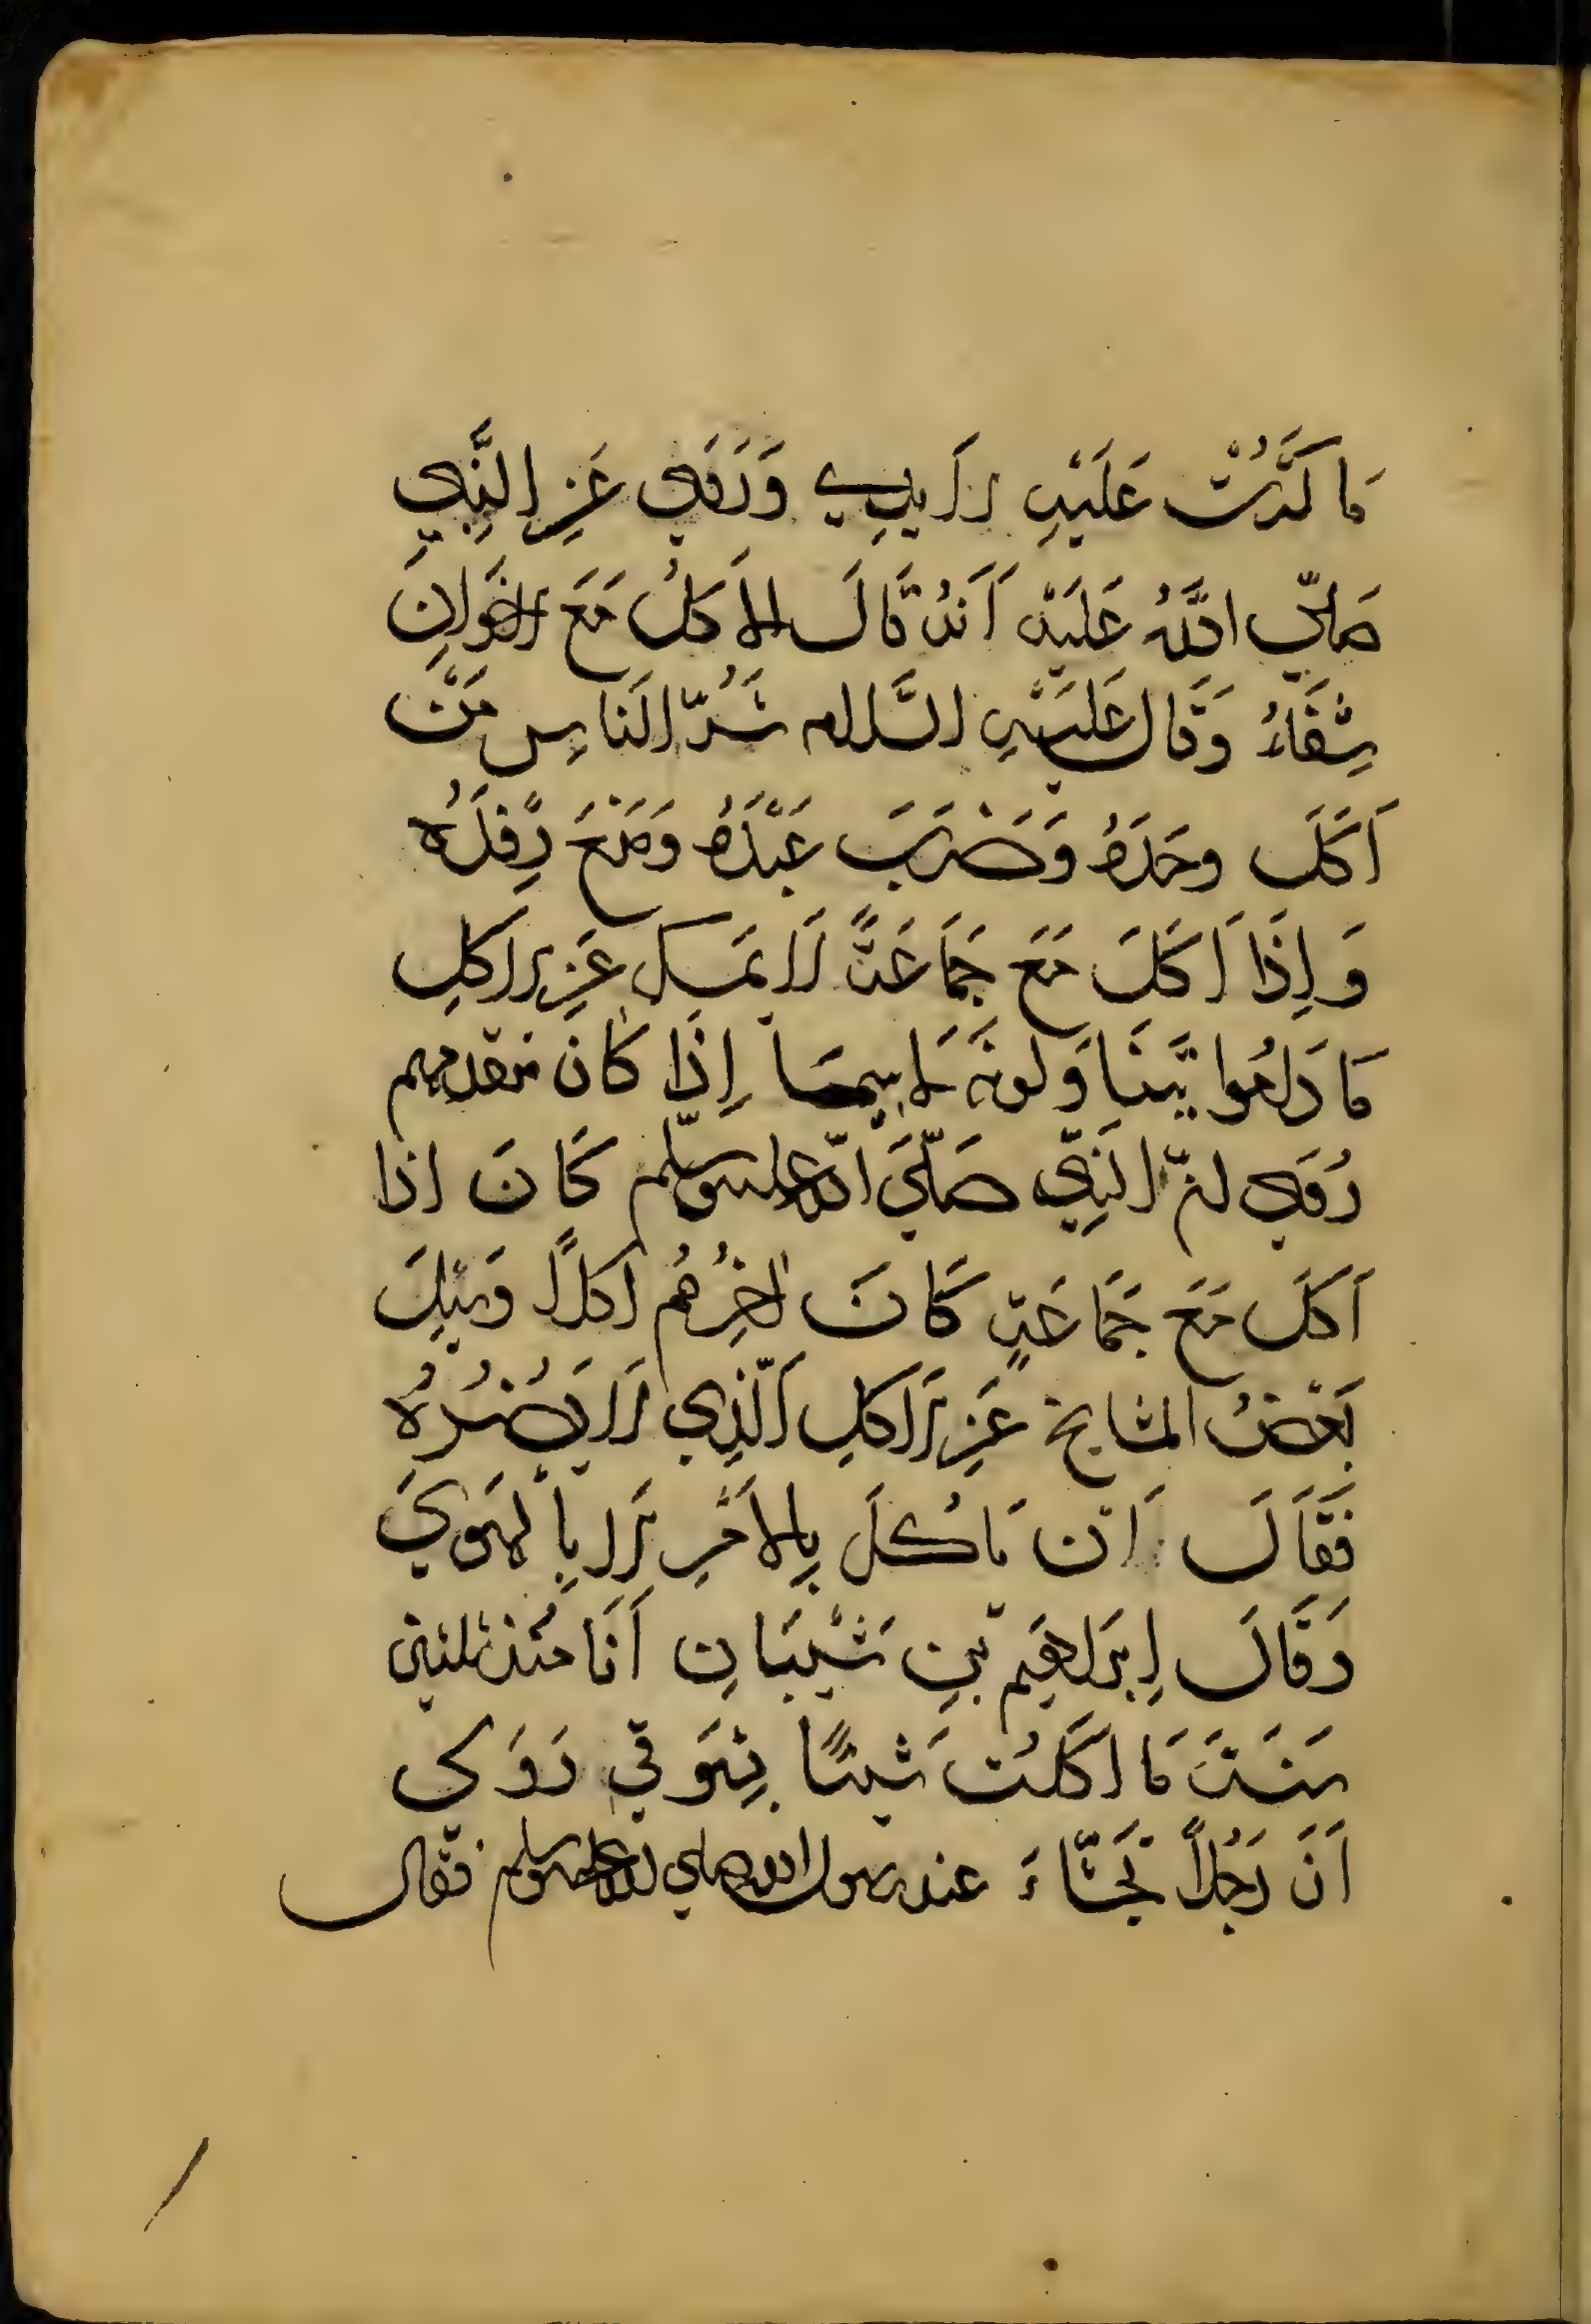 مَا كَثُرَتْ عَلَيْهِ الَايدِي وَرَوَي عَنِ النَّبِي
صَلّي اللَّهُ عَلَيْه اَنهُ قَالَ الاَكلُ مَعَ الاخَوانِ
شِفَاءُ وَقَال عَلَيْهِ السَّلام شَرُّ النَاسِ مَنْ
اَكَلَ وحَدَهُ وَضَرَبَ عَبْدَهُ وَمَنَعَ رِفدَهُ
وَ اِذَا اَكَلَ مَعَ جَمَاعَةً لَا يمَسك عَنِ الاَكلِ
مَا دَامُوا يَتنَاوَلونَه لَا سِيمَا اِذَا كَانَ مقدمهم
رُوَي انّ النَبِّي صَلّيَ الله عليه وسلّم كَانَ اذا
اَكَلَ مَعَ جَمَاعَةٍ كَانَ اخِرُهُم اَكلاً وَسُئِلَ
بَعْضُ المشايخ عَنِ الاَكلِ الَّذِي لَا يَضُرُهُ
فَقَالَ اَن يَاكُلَ بِالاَمْرِ لَا بِالهَوَيَ
وَقَالَ اِبرَاهِيم بنِ شَيْبَانِ اَنَا مُنذ ثمنين
سَنَةَ مَا اَكَلتُ شَيئًا بِشَهوَتي رَوَى
اَنَ رَجُلاً تَجَشّاءَ عند رسول الله صلي الله عليه وسلم فقال